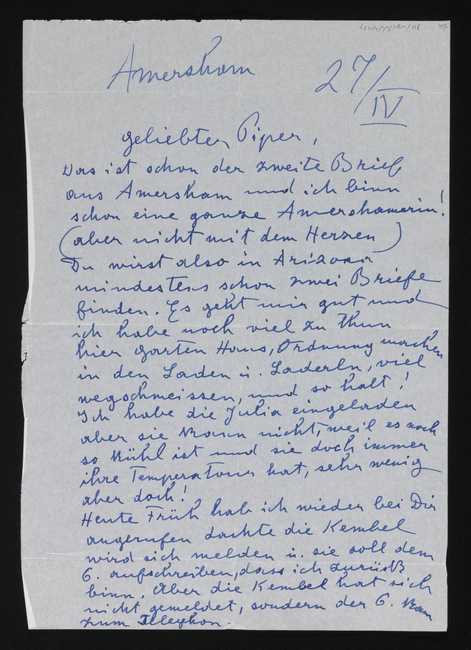 Amersham 27/IV
geliebter Piper,
Das ist schon der zweite Brief
aus Amersham und ich binn
schon eine ganze Amershamerin!
(aber nicht mit dem Herzen)
Du wirst also in Arizona
mindestens schon zwei Briefe
finden. Es geht mir gut und
ich habe noch viel zu thun
hier garten Haus, Ordnung machen
in den Laden u. Laderln, viel
wegschmeissen, und so halt!
Ich habe die Julia eingeladen
aber sie kann nicht, weil es noch
so kühl ist und sie doch immer
ihre Temperatour hat, sehr wenig
aber doch!
Heute Früh hab ich wieder bei Dir
angerufen dachte die Kembel
wird sich melden u. sie soll dem
G. aufschreiben, dass ich zurück
binn. Aber die Kembel hat sich
nicht gemeldet, sondern der G. kam
zum Telephon.